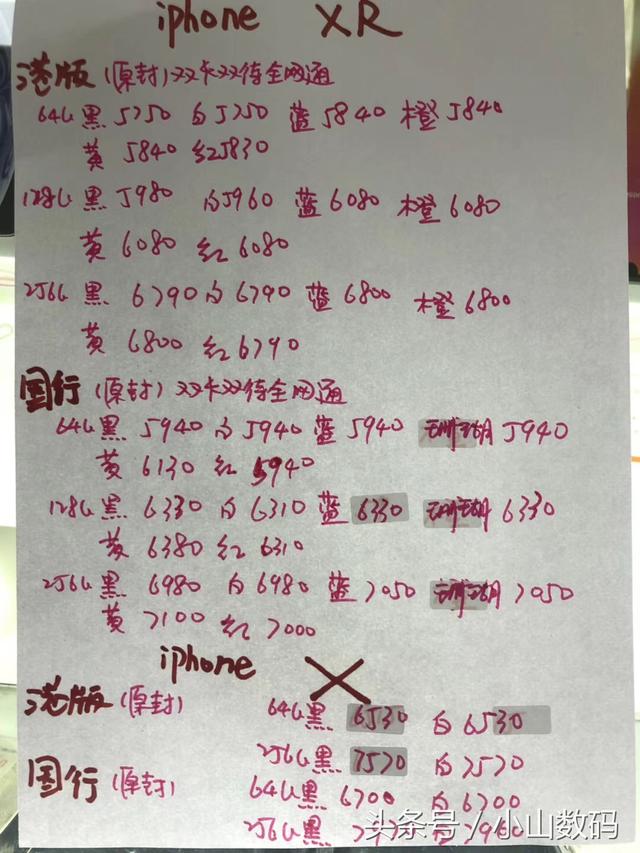 iphone XR
港版 (原封) 双卡双待全网通
64G 黑 5750 白 5750 蓝 5840 橙 5840
黄 5840 红 5830
128G 黑 5980 白 5960 蓝 6080 橙 6080
黄 6080 红 6080
256G 黑 6790 白 6790 蓝 6800 橙 6800
黄 6800 红 6790
国行 (原封) 双卡双待全网通
64G 黑 5940 白 5940 蓝 5940 珊瑚 5940
黄 6130 红 5940
128G 黑 6330 白 6310 蓝 6330 珊瑚 6330
黄 6380 红 6310
256G 黑 6980 白 6980 蓝 7050 珊瑚 7050
黄 7100 红 7000
iphone X
港版 (原封) 64G 黑 6530 白 6530
256G 黑 7570 白 7570
国行 (原封) 64G 黑 6700 白 6700
256G 黑
头条号 / 小山数码